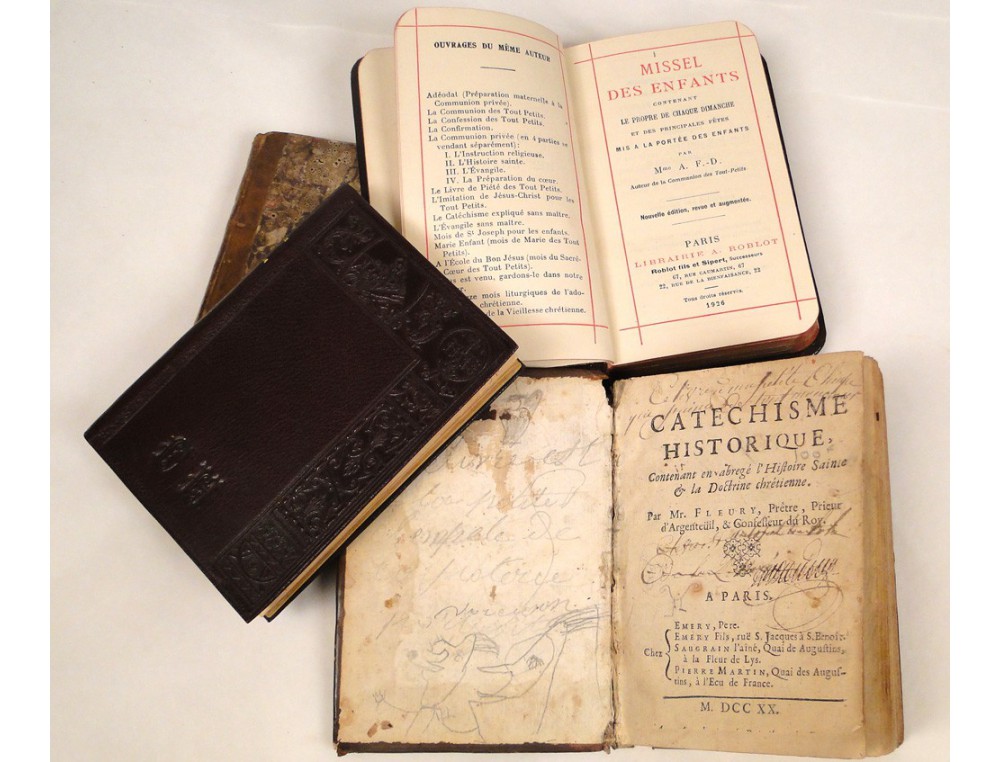 OUVRAGES DU MÊME AUTEUR
Adéodat (Préparation maternelle à la
Communion privée).
La Communion des Tout Petits.
La Confession des Tout Petits.
La Confirmation.
La Communion privée (en 4 parties se
vendant séparément):
I. L'Instruction religieuse.
II. L'Histoire sainte.
III. L'Évangile.
IV. La Préparation du cœur.
Le Livre de Piété des Tout Petits.
L'Imitation de Jésus-Christ pour les
Tout Petits.
Le Catéchisme expliqué sans maître.
L'Évangile sans maître.
Mois de St Joseph pour les enfants.
Marie Enfant (mois de Marie des Tout
Petits).
A l'École du Bon Jésus (mois du Sacré-
Cœur des Tout Petits).
est venu, gardons-le dans notre
mois liturgiques de l'ado-
chrétienne.
de la Vieillesse chrétienne.
MISSEL
DES ENFANTS
CONTENANT
LE PROPRE DE CHAQUE DIMANCHE
ET DES PRINCIPALES FÊTES
MIS A LA PORTÉE DES ENFANTS
PAR
Mme A. F.-D.
Auteur de la Communion des Tout-Petits
Nouvelle édition, revue et augmentée.
PARIS
LIBRAIRIE A. ROBLOT
Roblot fils et Sipert, Successeurs
67, RUE CAUMARTIN, 67
22, RUE DE LA BIENFAISANCE, 22
Tous droits réservés.
1926
CATECHISME
HISTORIQUE,
Contenant en abregé l'Histoire Sainte
& la Doctrine chrétienne.
Par Mr. FLEURY, Prêtre, Prieur
d'Argenteüil, & Confesseur du Roy.
A PARIS,
EMERY, Pere.
EMERY Fils, ruë S. Jacques à S. Benoît.
Chez SAUGRAIN l'aîné, Quai de Augustins,
à la Fleur de Lys.
PIERRE MARTIN, Quai des Augus-
tins, à l'Ecu de France.
M. DCC XX.